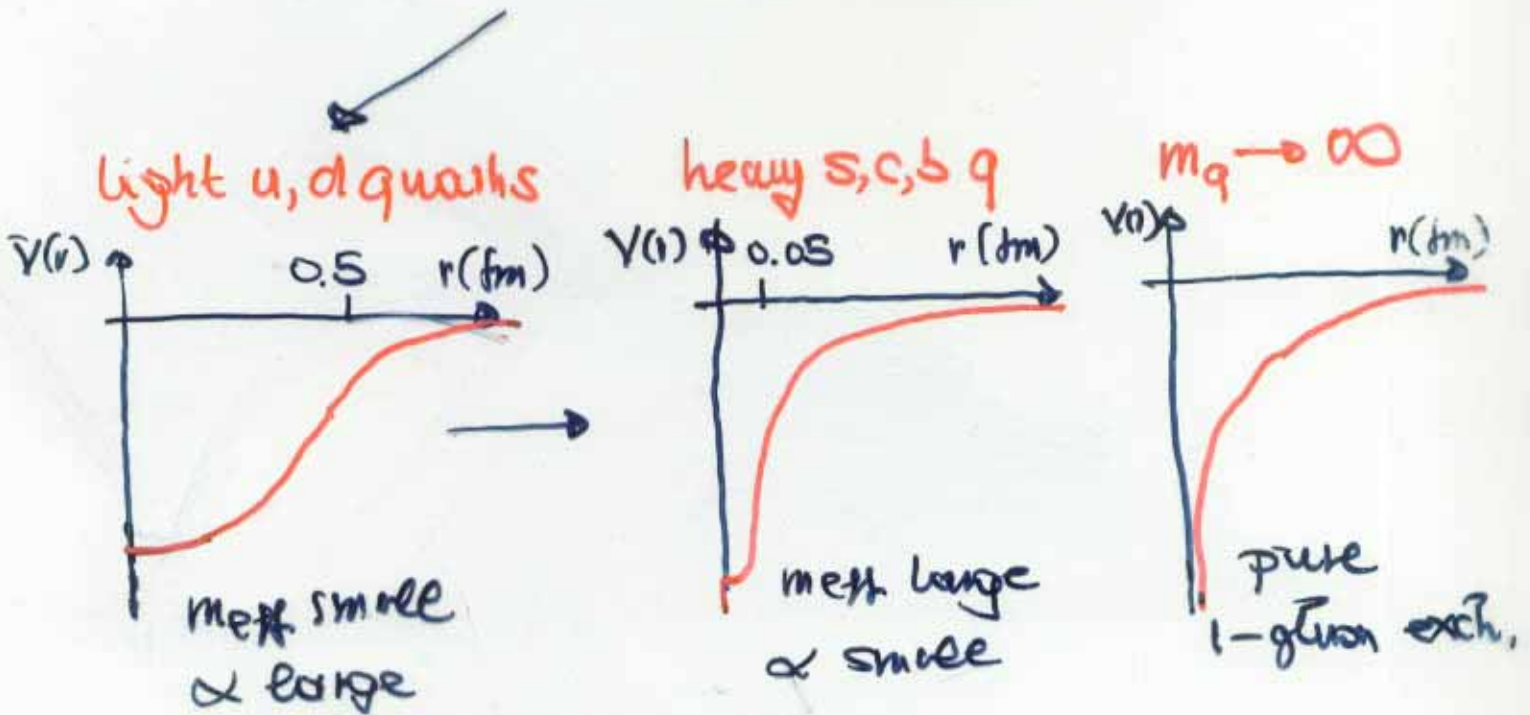 light u, d quarks
V(r)
0.5
r(fm)
meff. small
α large
heavy s, c, b q
V(r)
0.05
r(fm)
meff. large
α small
mq → ∞
V(r)
r(fm)
pure
1-gluon exch.